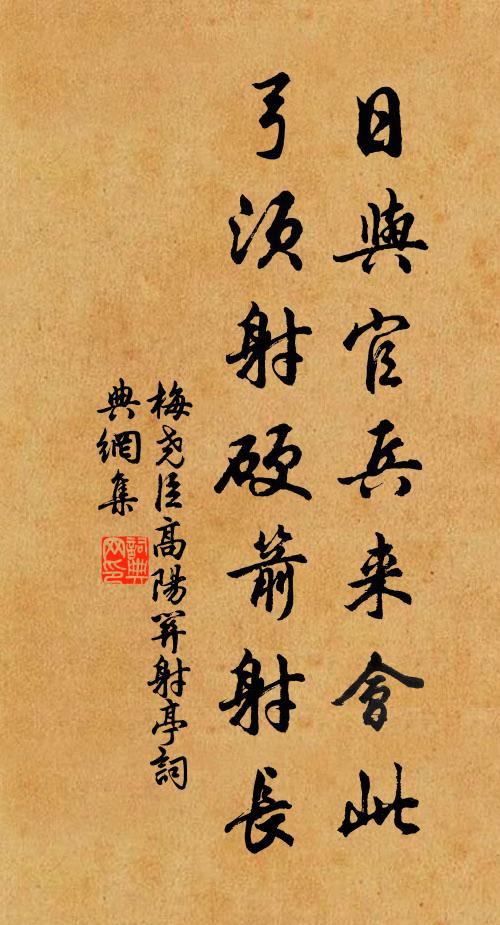 日與官兵来會此
弓須射硬箭射長
梅堯臣高陽關射亭詞
典網集
詞典網印